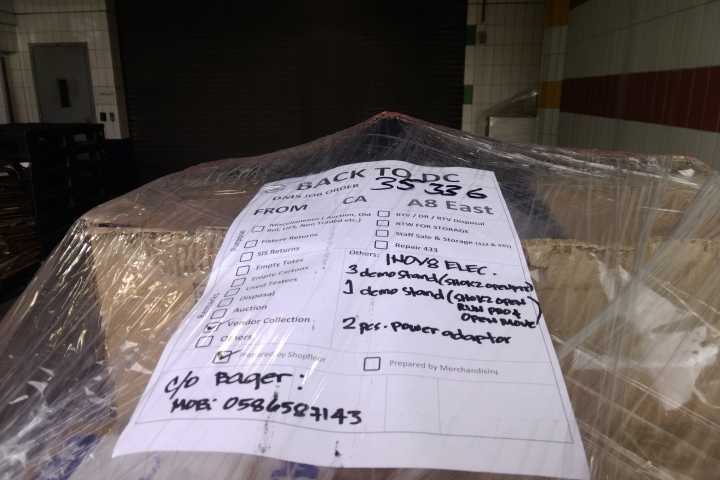 BACK TO DC
DMS JOB ORDER 35336
FROM CA A8 East
Miscellaneous (Auction, Old
Bol, UFS, Non Traded etc.)
Fixture Returns
SIS Returns
Empty Totes
Empty Cartons
Used Testers
Disposal
Auction
Vendor Collection
Others
Prepared by Shopfloor
RTS / DR / RTV Disposal
RTW FOR STORAGE
Staff Sale & Storage
Repair 433
Others: INOV8 ELEC.
3 demo stand (SHOKZ OPENFIT)
1 demo stand (SHOKZ OPEN
RUN PRO &
OPEN MOVE)
2 pcs. power adaptor
Prepared by Merchandising
c/o Bager:
MOB: 0586587143